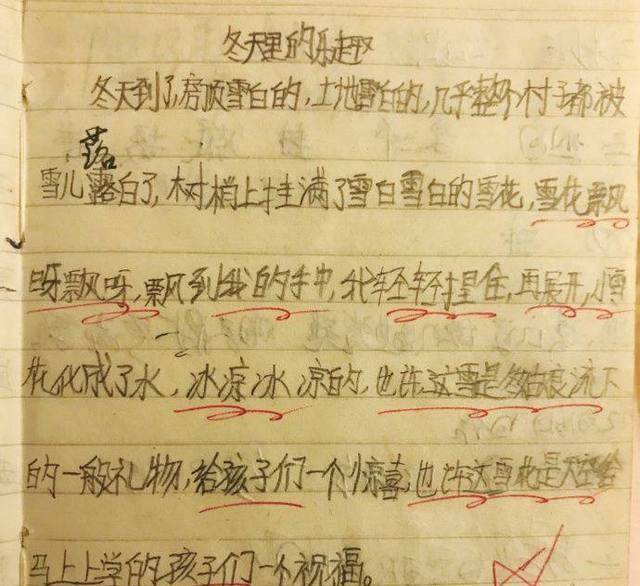 冬天里的乐趣
冬天到了,房顶雪白的,土地雪白的,几乎整个村子都被
落
雪儿露白了,树梢上挂满了雪白雪白的雪花,雪花飘风
呀飘呀,飘到我的手中,我轻轻捏住,再展开,小雪
花化成了水,冰凉冰凉的,也许这雪是冬爷爷流下
的一般礼物,给孩子们一个惊喜,也许这雪花是天空给
马上上学的孩子们一个祝福。